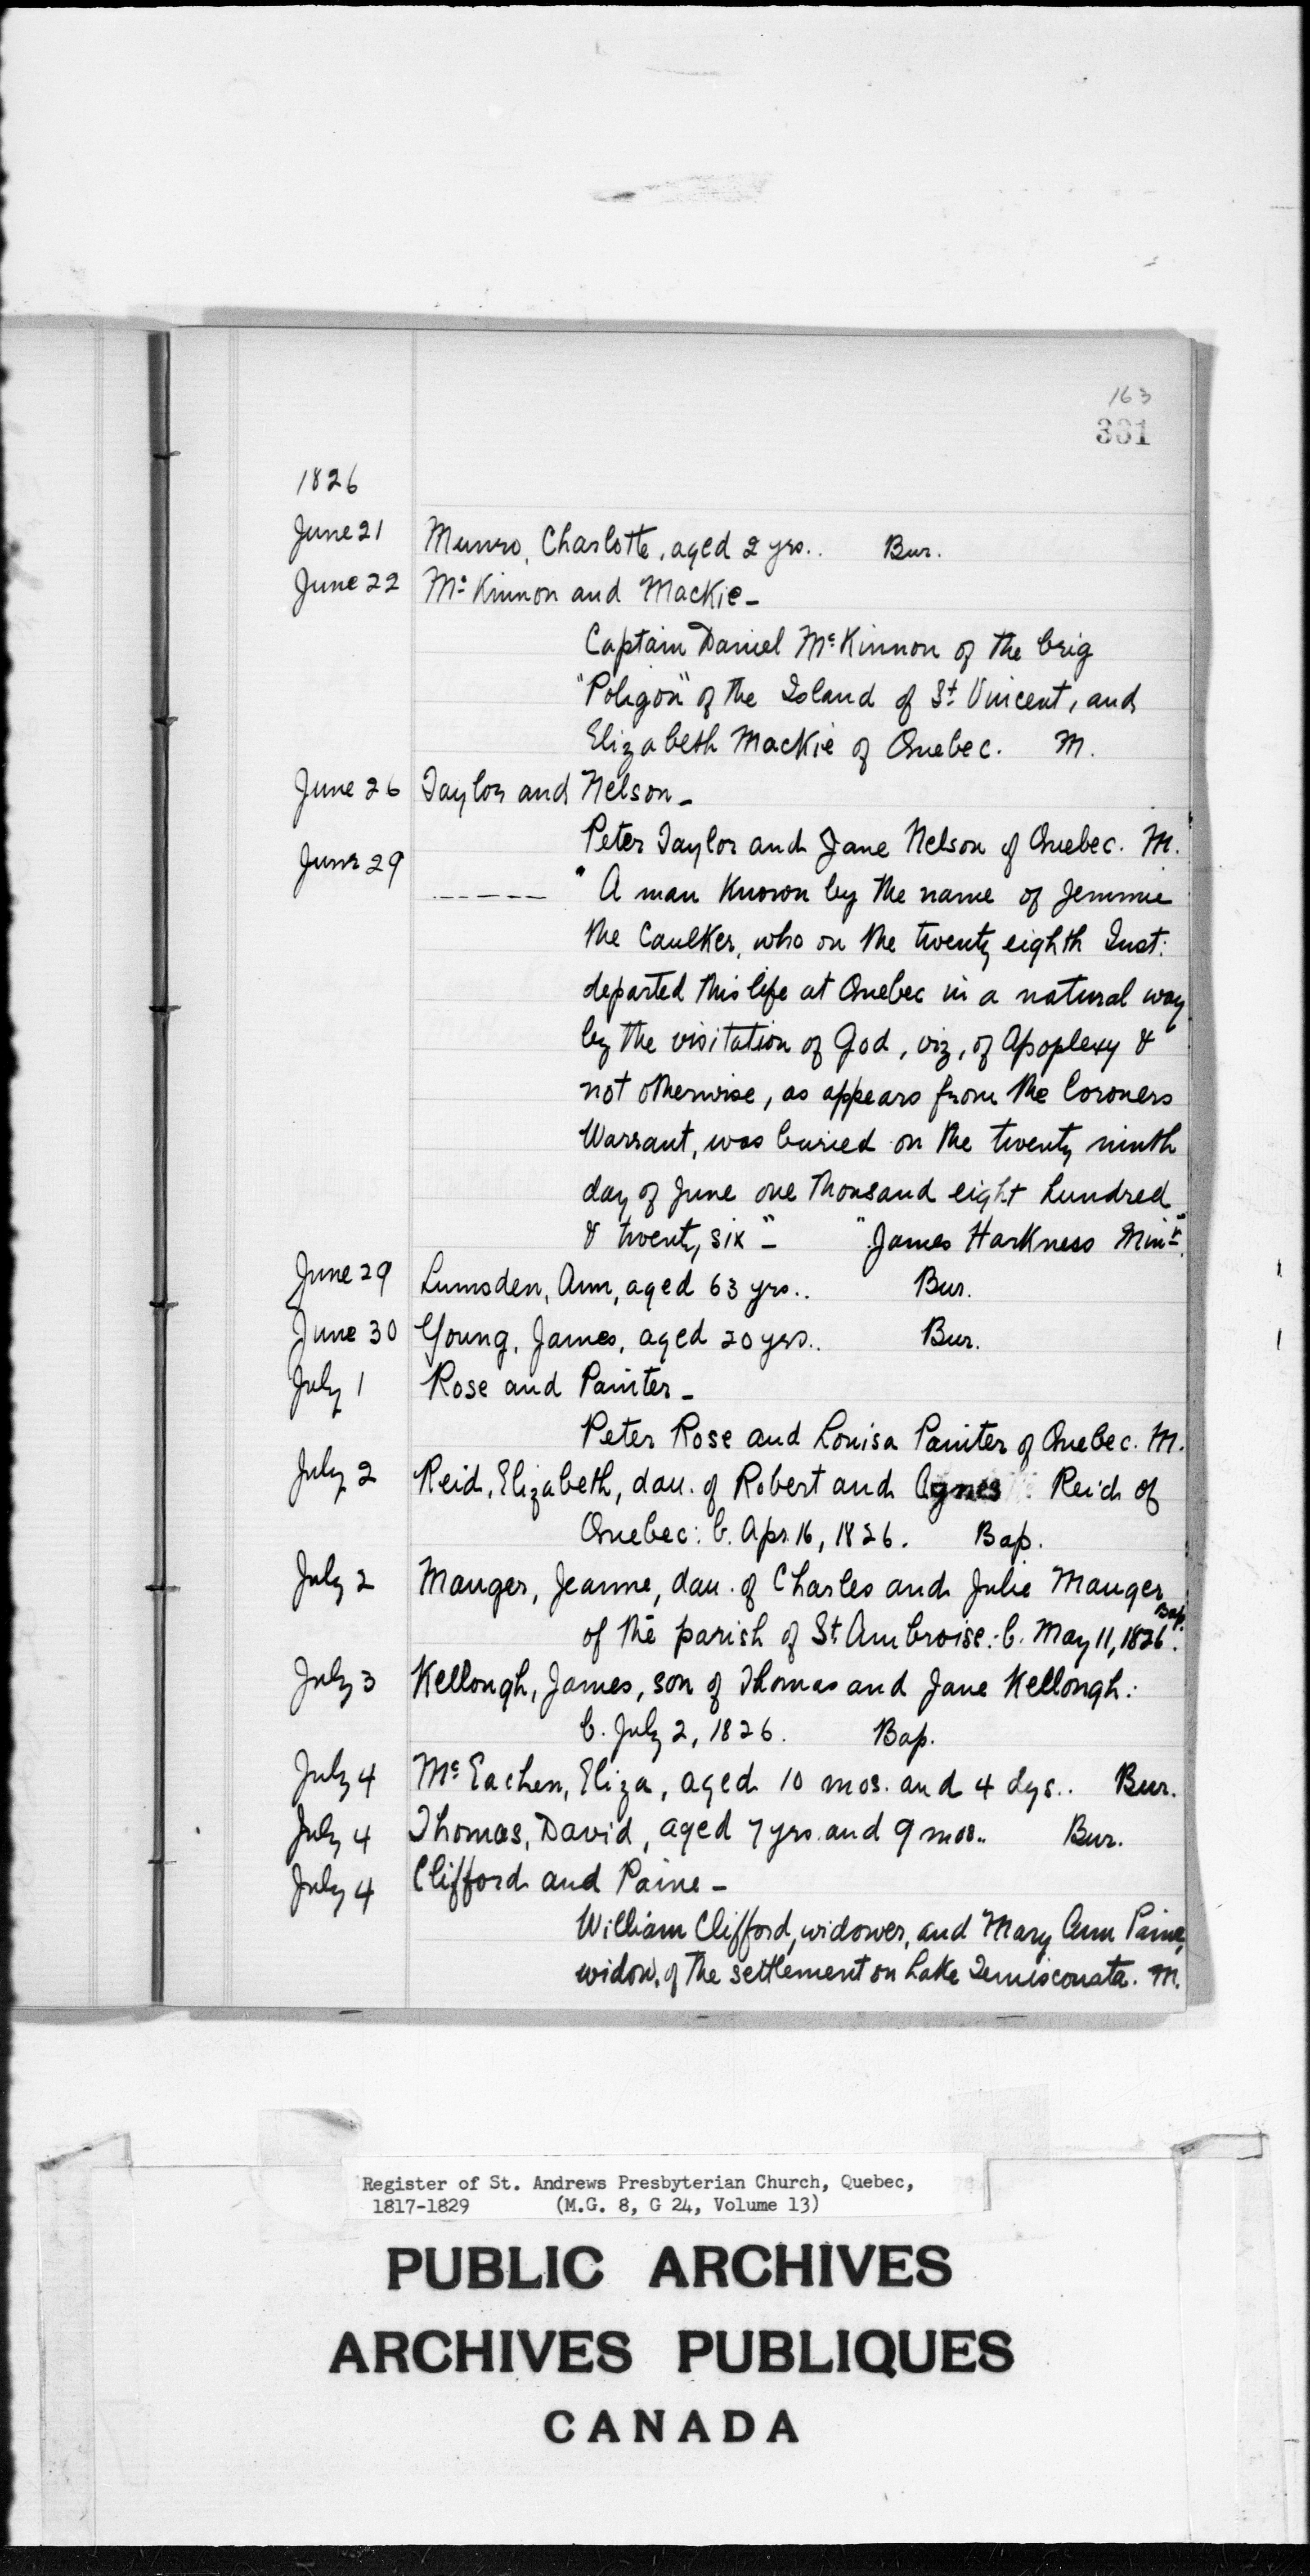 163
331
1826
June 21 Munro, Charlotte, aged 2 yrs.. Bur.
June 22 Mc Kinnon and Mackie -
Captain Daniel McKinnon of the brig
"Poligon" of the Island of St Vincent, and
Elizabeth Mackie of Quebec. M.
June 26 Taylor and Nelson -
Peter Taylor and Jane Nelson of Quebec. M.
June 29 ------ "A man known by the name of Jemmie
the Caulker, who on the twenty eighth Inst:
departed this life at Quebec in a natural way
by the visitation of God, viz, of Apoplexy &
not otherwise, as appears from the Coroners
Warrant, was buried on the twenty ninth
day of June one thousand eight hundred
& twenty six" - "James Harkness Minr"
June 29 Lumsden, Ann, aged 63 yrs.. Bur.
June 30 Young, James, aged 20 yrs.. Bur.
July 1 Rose and Painter -
Peter Rose and Louisa Painter of Quebec. M.
July 2 Reid, Elizabeth, dau. of Robert and Agnes Reid of
Quebec: b. Apr. 16, 1826. Bap.
July 2 Mauger, Jeanne, dau. of Charles and Julie Mauger
of the parish of St. Ambroise: b. May 11, 1826. Bap.
July 3 Kellough, James, son of Thomas and Jane Kellough:
b. July 2, 1826. Bap.
July 4 Mc Eachen, Eliza, aged 10 mos. and 4 dys.. Bur.
July 4 Thomas, David, aged 7 yrs. and 9 mos.. Bur.
July 4 Clifford and Paine -
William Clifford, widower, and Mary Ann Paine,
widow, of the settlement on Lake Temisconata. M.
Register of St. Andrews Presbyterian Church, Quebec,
1817-1829 (M.G. 8, G 24, Volume 13)
PUBLIC ARCHIVES
ARCHIVES PUBLIQUES
CANADA